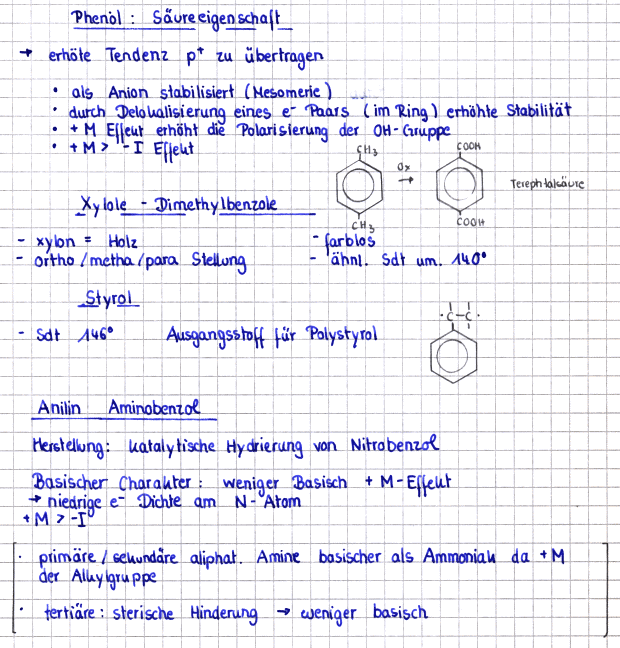 Phenol : Säureeigenschaft
→ erhöte Tendenz p⁺ zu übertragen
• als Anion stabilisiert (Mesomerie)
• durch Delokalisierung eines e⁻ Paars (im Ring) erhöhte Stabilität
• + M Effekt erhöht die Polarisierung der OH-Gruppe
• + M > - I Effekt
CH₃
Ox
→
COOH
Terephtalsäure
CH₃
COOH
Xylole - Dimethylbenzole
- xylon = Holz
- ortho/metha/para Stellung
- farblos
- ähnl. Sdt um. 140°
Styrol
- Sdt 146° Ausgangsstoff für Polystyrol
·C-C·
Anilin Aminobenzol
Herstellung: katalytische Hydrierung von Nitrobenzol
Basischer Charakter: weniger Basisch + M-Effekt
→ niedrige e⁻ Dichte am N-Atom
+ M > -I
• primäre/sekundäre aliphat. Amine basischer als Ammoniak da + M
der Alkylgruppe
• tertiäre: sterische Hinderung → weniger basisch